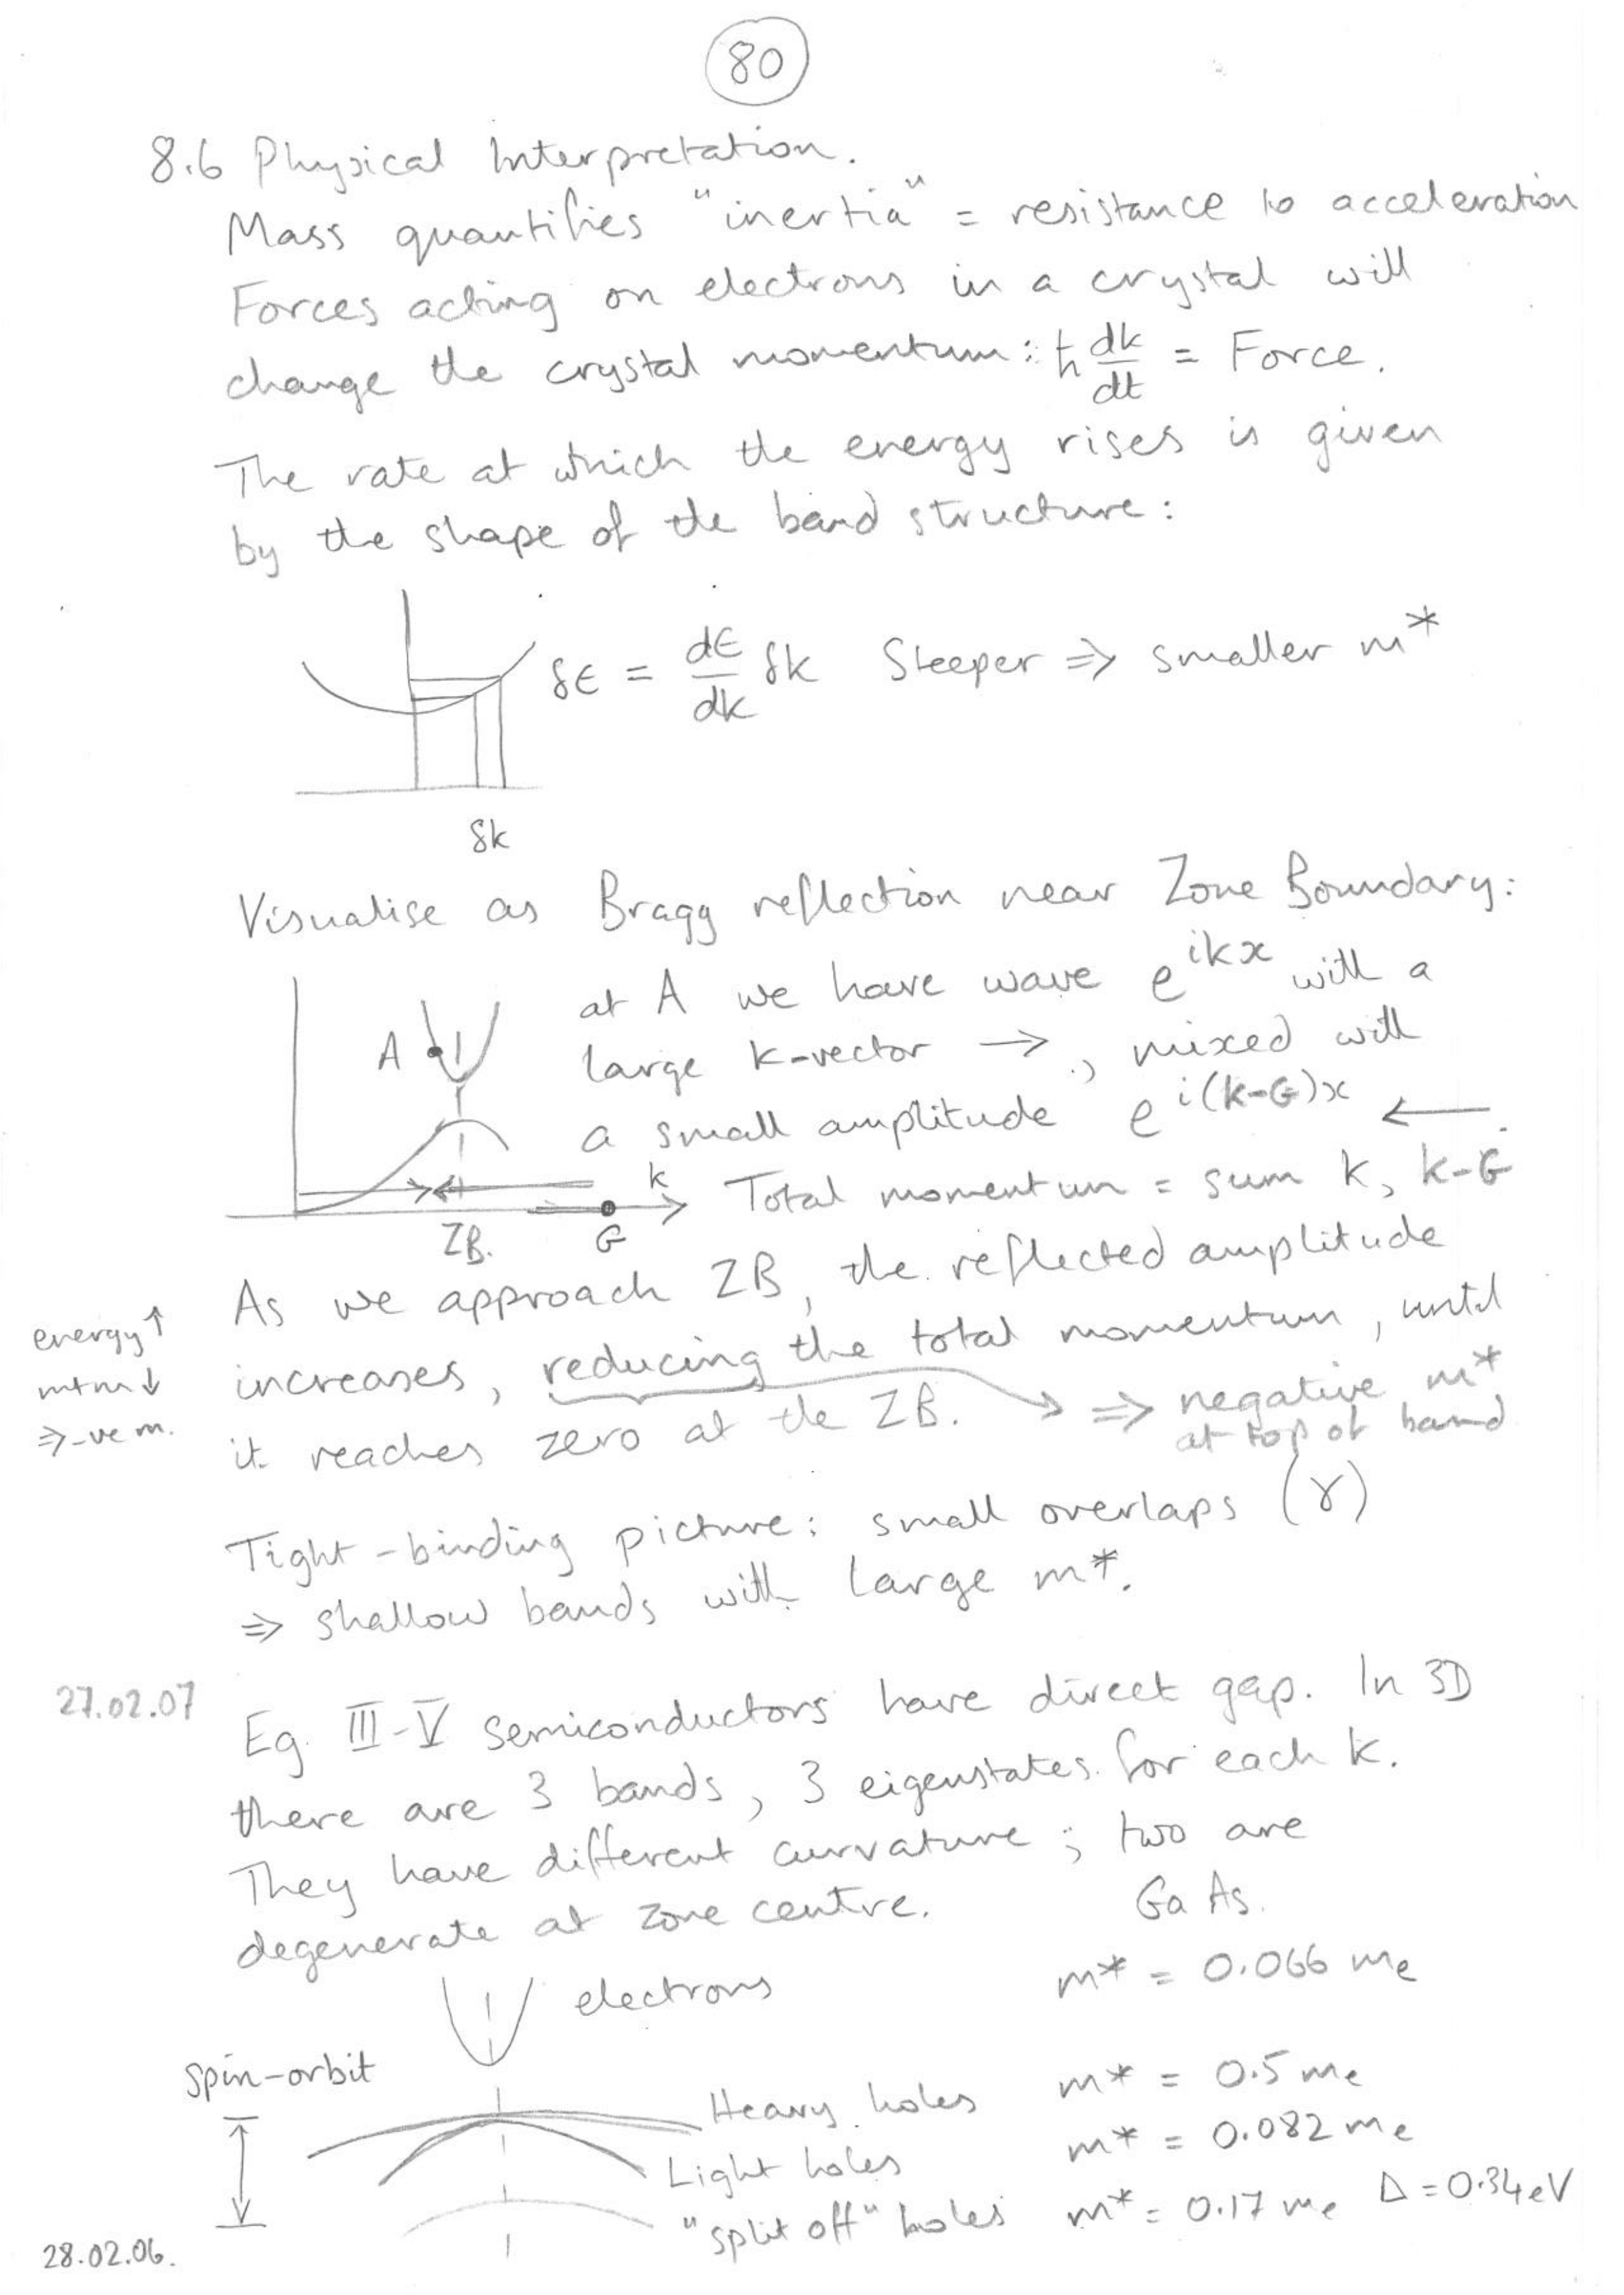 80
8.6 Physical Interpretation.
Mass quantifies "inertia" = resistance to acceleration
Forces acting on electrons in a crystal will
change the crystal momentum: ℏ dk/dt = Force.
The rate at which the energy rises is given
by the shape of the band structure:
δE = dE/dk δk Steeper ⇒ smaller m*
δk
Visualise as Bragg reflection near Zone Boundary:
at A we have wave e^{ikx} with a
A
large k-vector →, mixed with
a small amplitude e^{i(k-G)x} ←
k
Total momentum = sum k, k-G
ZB. G
As we approach ZB, the reflected amplitude
energy↑
increases, reducing the total momentum, until
mtm↓
it reaches zero at the ZB. → ⇒ negative m*
at top of band
⇒ -ve m.
Tight-binding picture: small overlaps (γ)
⇒ shallow bands with large m*.
27.02.07
Eg. III-V semiconductors have direct gap. In 3D
there are 3 bands, 3 eigenstates for each k.
They have different curvature; two are
degenerate at zone centre.
GaAs.
electrons m* = 0.066 me
spin-orbit
Heavy holes m* = 0.5 me
Light holes m* = 0.082 me
"split off" holes m* = 0.17 me Δ = 0.34eV
28.02.06.